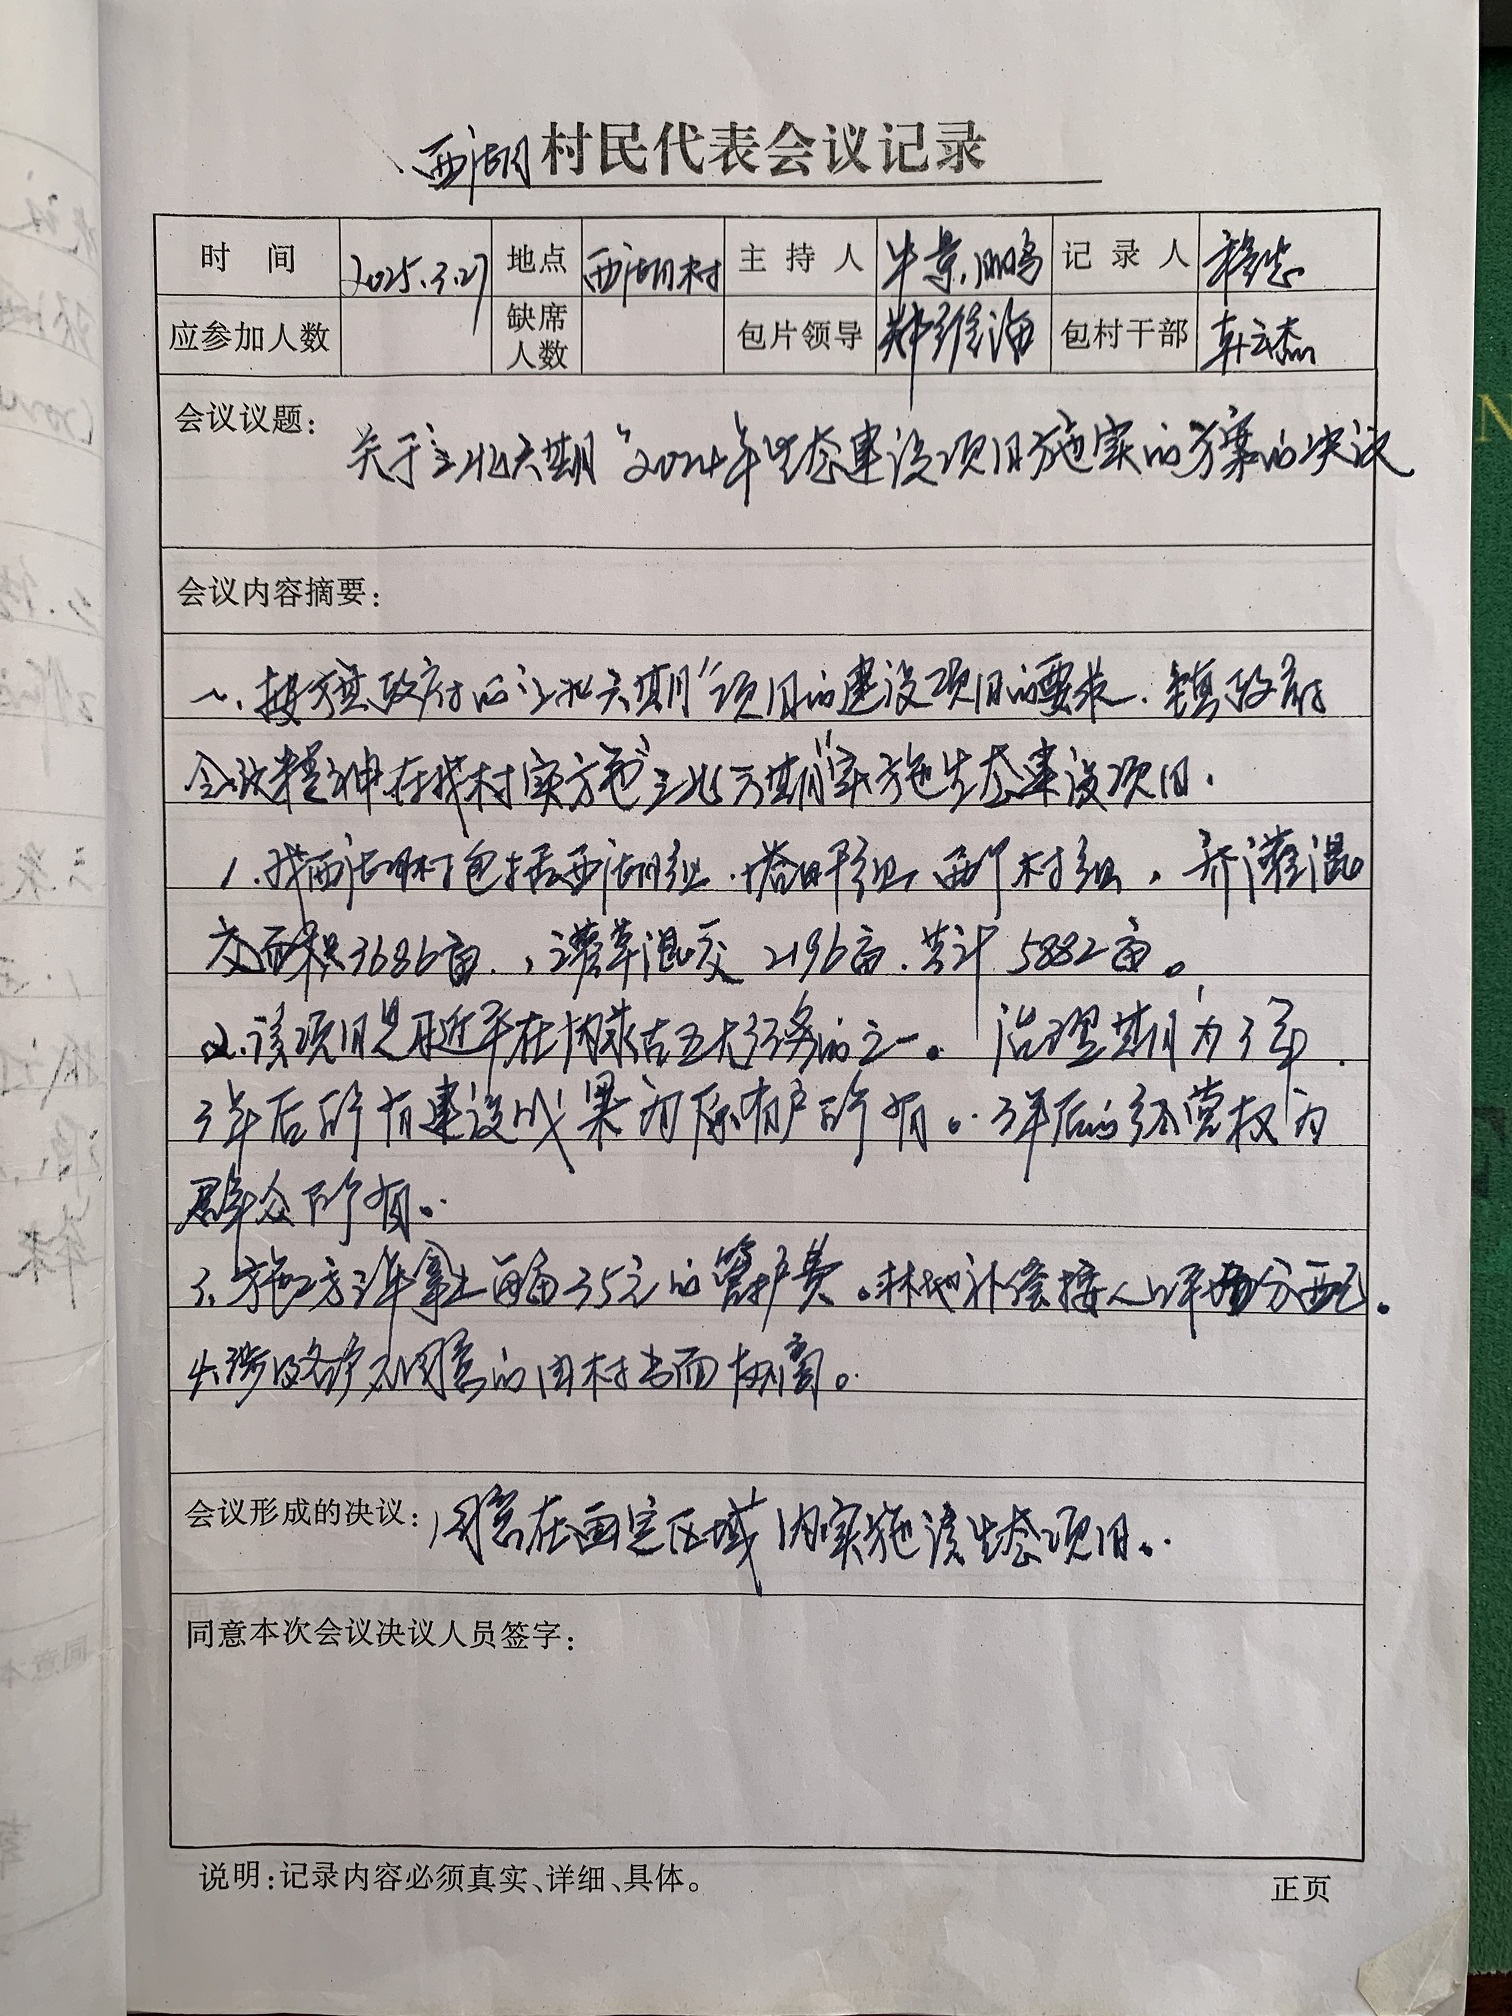 西湖村民代表会议记录
时间 2025.3.27 地点 西湖村 主持人 牛景鹏 记录人
应参加人数 缺席人数 包片领导 郑维海 包村干部
会议议题：
关于三北六期"2024年生态建设项目施实的方案的决议
会议内容摘要：
一、按 政府的三北六期"项目的建设项目的要求、镇政府
会议精神在我村实施"三北六期"实施生态建设项目.
1.我西湖村包括西湖组. 组 西 村组, 乔灌混
交面积3686亩., 灌草混交 2196亩. 共计 5882亩。
2.该项目是习近平在内蒙古五大任务的之一。治理期为3年.
3年后所有建设成果为原有户所有。3年后的经营权为
群众所有。
3.施工方三年拿出每亩35元的管护费。林地补偿按人口 分配。
4.涉及各户不同意的由村书面 。
会议形成的决议：同意在画定区域内实施该生态项目。
同意本次会议决议人员签字：
说明：记录内容必须真实、详细、具体。
正页